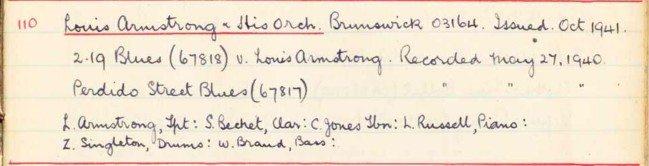 110 Louis Armstrong & His Orch. Brunswick 03164. Issued. Oct 1941.
2.19 Blues (67818) v. Louis Armstrong. Recorded May 27, 1940.
Perdido Street Blues (67817) " " "
L. Armstrong, Tpt: S. Bechet, Clar: C. Jones Tbn: L. Russell, Piano:
Z. Singleton, Drums: W. Braud, Bass: